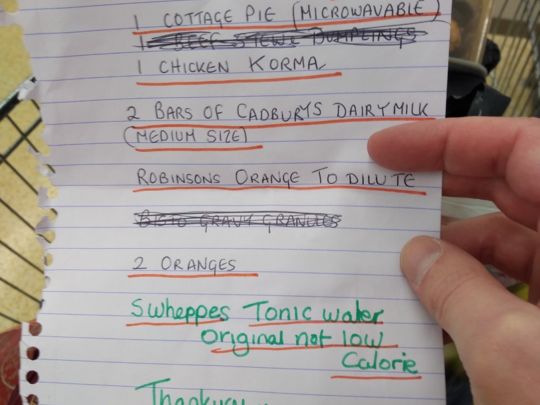 1 COTTAGE PIE (MICROWAVABLE)
1 BEEF STEW & DUMPLINGS
1 CHICKEN KORMA
2 BARS OF CADBURYS DAIRY MILK
(MEDIUM SIZE)
ROBINSONS ORANGE TO DILUTE
BISTO GRAVY GRANULES
2 ORANGES
Swheppes Tonic water
Original not low
Calorie
Thankyou